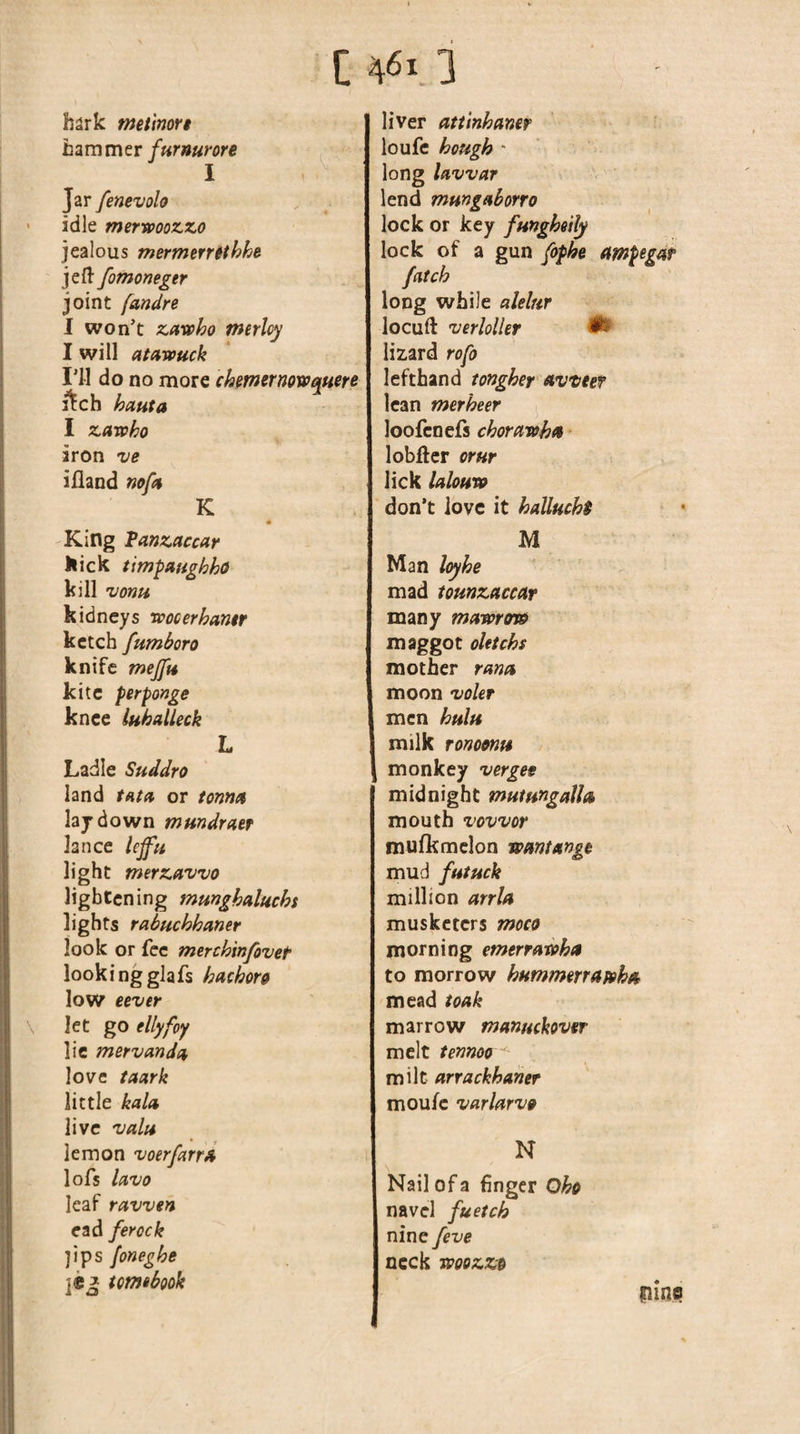 [ 461 ]
hark metinore
hammer furnurore
I
Jar fenevolo
idle merwoozzo
jealous mermerrethhe
jeſt ſomoneger
joint ſandre
I won't zawho merloy
I will atawuck
I'll do no more chemernowquere
itch hauta
I zawho
iron ve
iſland noſa
K
King Panzaccar
kick timpaughho
kill vonu
kidneys wocerhaner
ketch fumboro
knife meſſu
kite perponge
knee luhalleck
L
Ladle Suddro
land tata or tonna
lay down mundraer
lance leffu
light merzavvo
lightening munghaluchs
lights rabuchhaner
look or ſee merchinſover
looking glaſs hachoro
low eever
let go ellyfoy
lie mervanda
love taark
little kala
live valu
lemon voerfarra
loſs lavo
leaf ravven
ead ferock
lips ſoneghe
leg tomebook
liver attinhaner
louſe hough
long lavvar
lend mungaborro
lock or key fungheily
lock of a gun ſophe ampegar
ſatch
long while alelur
locuſt verloller
lizard roſo
lefthand tongher avveer
lean merheer
looſeneſs chorawha
lobſter orur
lick lalouw
don't love it halluchi
M
Man loyhe
mad tounzaccar
many mawrow
maggot oletchs
mother rana
moon voler
men hulu
milk ronoonu
monkey vergee
midnight mutungalla
mouth vovvor
muſkmelon wantange
mud futuck
million arrla
musketers moco
morning emerrawha
to morrow hummerrawha
mead toak
marrow manuckover
melt tennoo
milt arrackhaner
mouſe varlarvo
N
Nail of a finger Oho
navel fuetch
nine ſeve
neck woozzo
nine